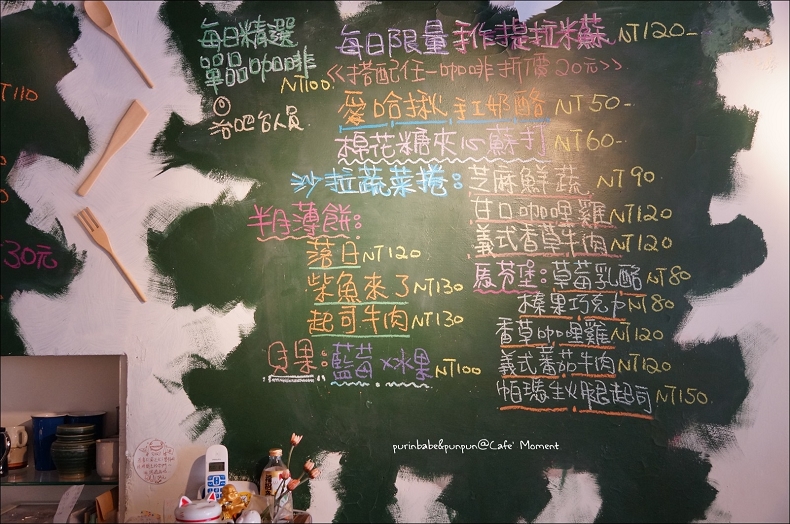 每日精選
單品咖啡
NT100.
洽吧台人員
每日限量手作提拉米蘇 NT120-
<<搭配任一咖啡折價20元>>
愛哈啾手工奶酪 NT50-
棉花糖夾心蘇打 NT60-
沙拉蔬菜捲:芝麻鮮蔬 NT90
甘口咖哩雞NT120
義式香草牛肉NT120
半月薄餅:
落日NT120
柴魚來了NT130
起司牛肉NT130
貝果:藍莓x水果 NT100
馬芬堡:草莓乳酪NT80
榛果巧克力NT80
香草咖哩雞NT120
義式蕃茄牛肉NT120
帕瑪生火腿起司NT150.
T110
30元
purinbabe&punpun@Cafe' Moment